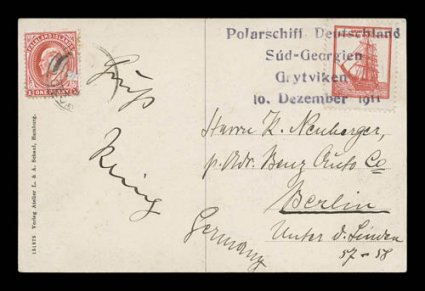 FALKLAND ISLANDS
ONE PENNY
Polarschiff Deutschland
Süd-Georgien
Grytviken
10. Dezember 1911
Gruß
Herrn K. Neuberger,
p. Adr. Benz Auto Co
Berlin
Unter d. Linden
57-58
Germany
151875 Verlag Atelier L. & A. Schaul, Hamburg.